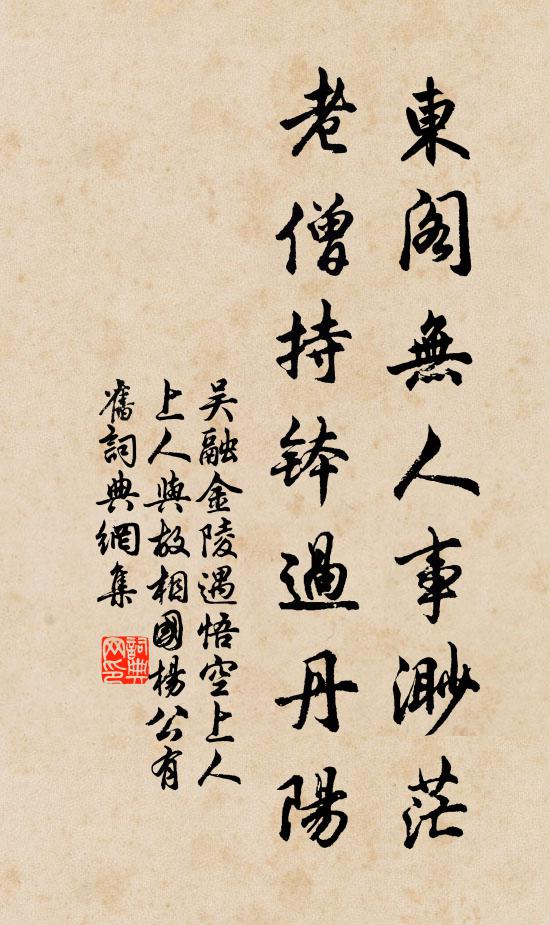 東閣無人事渺茫
老僧持鉢過丹陽
吴融金陵遇悟空上人
上人與故相國楊公有
舊詞典網集
詞典
网印